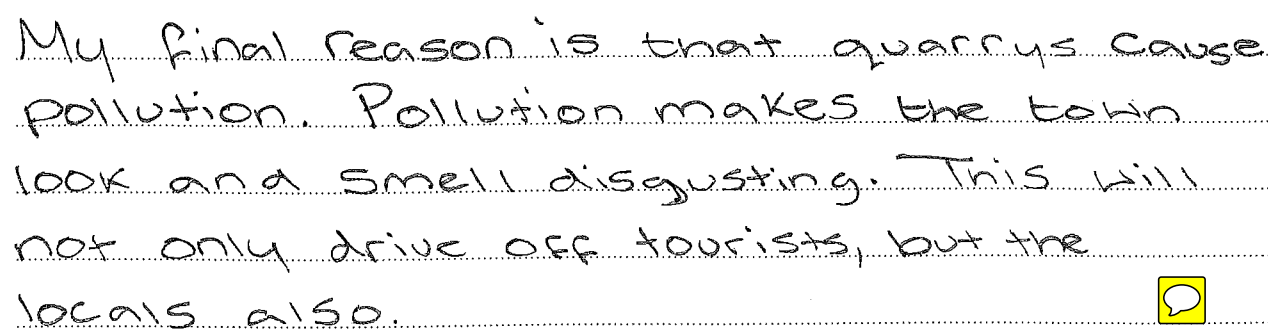 My final reason is that quarrys cause
pollution. Pollution makes the town
look and smell disgusting. This will
not only drive off tourists, but the
locals also.